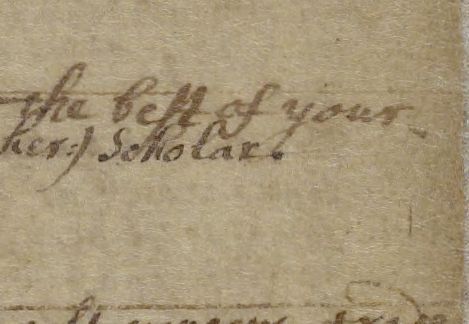 the best of your
her:) Scholar.